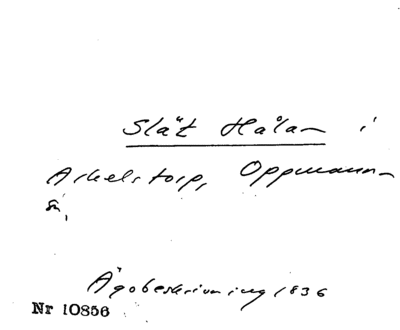 Slät Hålan i
Arkelstorp, Oppmanna
sn,
Ägobeskrivning 1836
Nr 10856